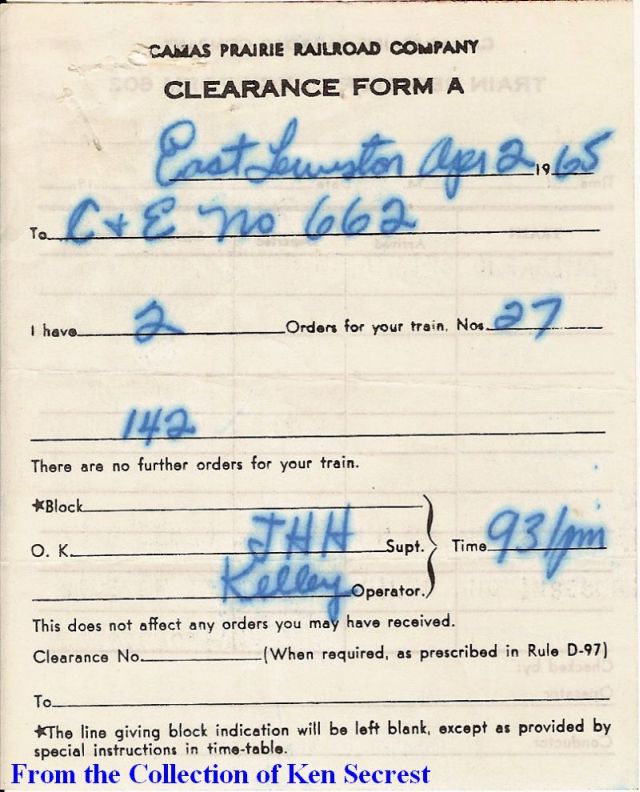 CAMAS PRAIRIE RAILROAD COMPANY
CLEARANCE FORM A
East Lewiston Apr 2 1965
To C & E No 662
I have 2 Orders for your train, Nos. 27
142
There are no further orders for your train.
★Block
O. K. JHH Supt. Time 931pm
Kelley Operator.
This does not affect any orders you may have received.
Clearance No. (When required, as prescribed in Rule D-97)
To
★The line giving block indication will be left blank, except as provided by
special instructions in time-table.
From the Collection of Ken Secrest